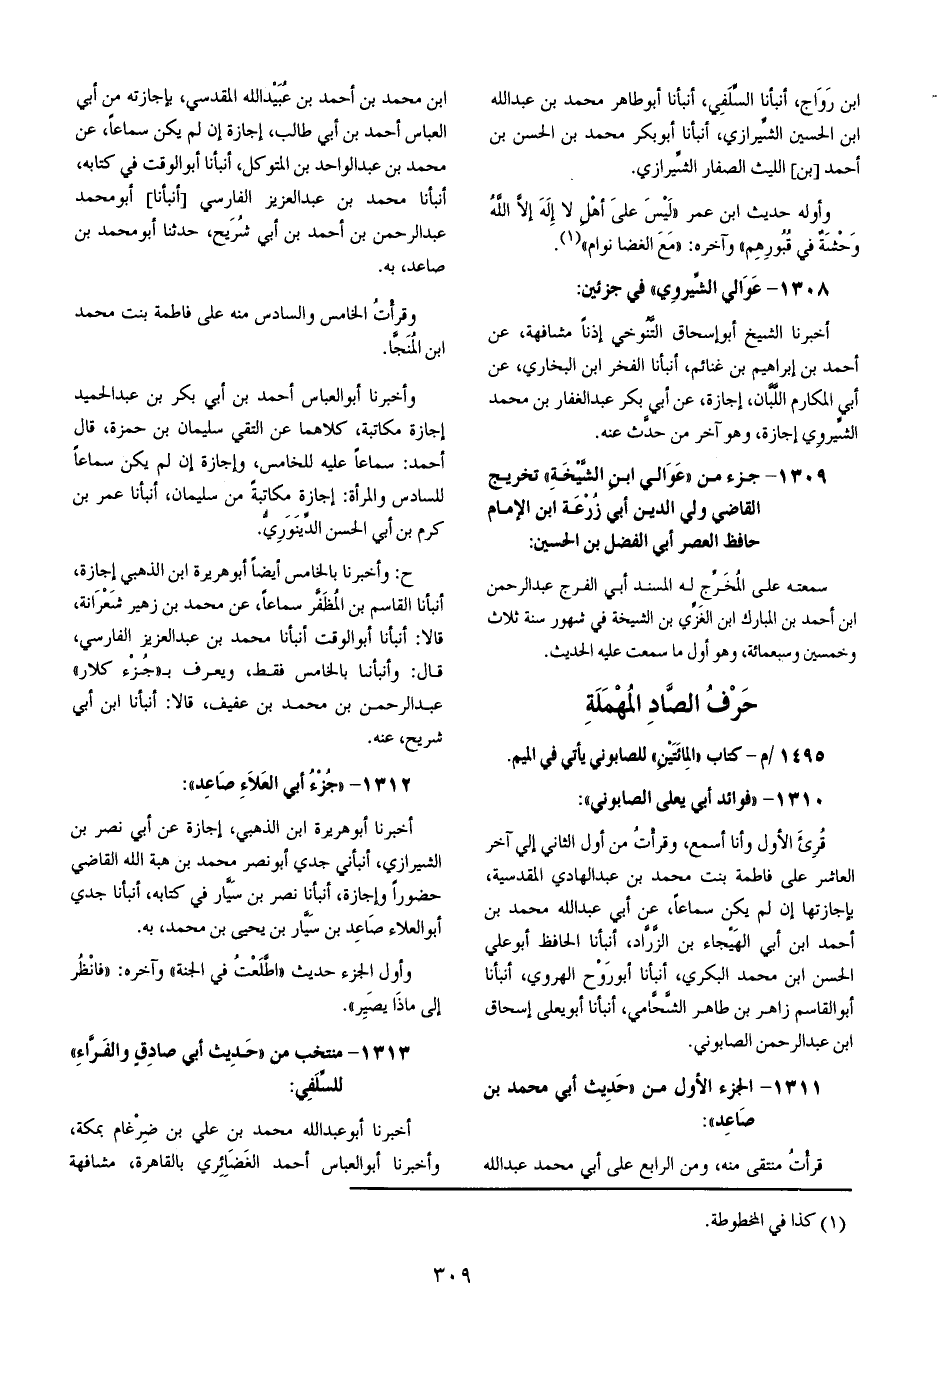 ابن رَوَاج، أنبأنا السِّلَفي، أنبأنا أبوطاهر محمد بن عبدالله
ابن الحسين الشِّيرازي، أنبأنا أبوبكر محمد بن الحسن بن
أحمد [بن] الليث الصفار الشِّيرازي.
وأوله حديث ابن عمر «لَيْسَ عَلىَ أهْلِ لا إِلَهَ إلاَّ اللَّهُ
وَحْشَةٌ في قُبُورِهِم» وآخره: «مَعَ الغضا نوام»(١).
١٣٠٨- عَوَالي الشِّيروي» في جزئين:
أخبرنا الشيخ أبوإسحاق التَّنُوخي إذناً مشافهة، عن
أحمد بن إبراهيم بن غنائم، أنبأنا الفخر ابن البخاري، عن
أبي المكارم اللَّبَّان، إجازة، عن أبي بكر عبدالغفار بن محمد
الشِّيروي إجازة، وهو آخر من حدَّث عنه.
١٣٠٩- جزء من «عَوَالي ابن الشَّيْخَة» تخريج
القاضي ولي الدين أبي زُرْعَة ابن الإمام
حافظ العصر أبي الفضل بن الحسين:
سمعته على المُخَرِّج له المسند أبي الفرج عبدالرحمن
ابن أحمد بن المبارك ابن الغَزِّي بن الشيخة في شهور سنة ثلاث
وخمسين وسبعمائة، وهو أول ما سمعت عليه الحديث.
حَرْفُ الصَّادِ المُهْمَلَةِ
١٤٩٥ /م - كتاب «المِائَتَيْنِ» للصابوني يأتي في الميم.
١٣١٠- «فوائد أبي يعلى الصابوني»:
قُرِئَ الأول وأنا أسمع، وقرأتُ من أول الثاني إلي آخر
العاشر على فاطمة بنت محمد بن عبدالهادي المقدسية،
بإجازتها إن لم يكن سماعاً، عن أبي عبدالله محمد بن
أحمد ابن أبي الهَيْجاء بن الزَّرَّاد، أنبأنا الحافظ أبوعلي
الحسن ابن محمد البكري، أنبأنا أبورَوْح الهروي، أنبأنا
أبوالقاسم زاهر بن طاهر الشَّحَّامي، أنبأنا أبويعلى إسحاق
ابن عبدالرحمن الصابوني.
١٣١١- الجزء الأول من «حَدِيث أبي محمد بن
صَاعِد»:
قرأتُ منتقى منه، ومن الرابع على أبي محمد عبدالله
ابن محمد بن أحمد بن عُبَيْدالله المقدسي، بإجازته من أبي
العباس أحمد بن أبي طالب، إجازة إن لم يكن سماعاً، عن
محمد بن عبدالواحد بن المتوكل، أنبأنا أبوالوقت في كتابه،
أنبأنا محمد بن عبدالعزيز الفارسي [أنبأنا] أبومحمد
عبدالرحمن بن أحمد بن أبي شُرَيح، حدثنا أبومحمد بن
صاعد، به.
وقرأتُ الخامس والسادس منه على فاطمة بنت محمد
ابن المُنَجَّا.
وأخبرنا أبوالعباس أحمد بن أبي بكر بن عبدالحميد
إجازة مكاتبة، كلاهما عن التقي سليمان بن حمزة، قال
أحمد: سماعاً عليه للخامس، وإجازة إن لم يكن سماعاً
للسادس والمرأة: إجازة مكاتبةً من سليمان، أنبأنا عمر بن
كرم بن أبي الحسن الدِّينَوَرِيُّ.
ح: وأخبرنا بالخامس أيضاً أبوهريرة ابن الذهبي إجازة،
أنبأنا القاسم بن المُظَفَّر سماعاً، عن محمد بن زهير شَعْرَانة،
قالا: أنبأنا أبوالوقت أنبأنا محمد بن عبدالعزيز الفارسي،
قال: وأنبأنا بالخامس فقط، ويعرف بـ«جُزْء كلار»
عبدالرحمن بن محمد بن عفيف، قالا: أنبأنا ابن أبي
شريح، عنه.
١٣١٢- «جُزْءُ أبي العَلاَءِ صَاعِد»:
أخبرنا أبوهريرة ابن الذهبي، إجازة عن أبي نصر بن
الشيرازي، أنبأني جدي أبونصر محمد بن هبة الله القاضي
حضوراً وإجازة، أنبأنا نصر بن سَيَّار في كتابه، أنبأنا جدي
أبوالعلاء صَاعِد بن سَيَّار بن يحيى بن محمد، به.
وأول الجزء حديث «اطَّلَعْتُ في الجنة» وآخره: «فانْظُر
إلى ماذَا يصَيِر».
١٣١٣- منتخب من «حَدِيث أبي صادِقٍ والفَرَّاءِ»
للسِّلَفي:
أخبرنا أبوعبدالله محمد بن علي بن ضِرْغام بمكة،
وأخبرنا أبوالعباس أحمد الغَضَائِري بالقاهرة، مشافهة
(١) كذا في المخطوطة.
٣٠٩